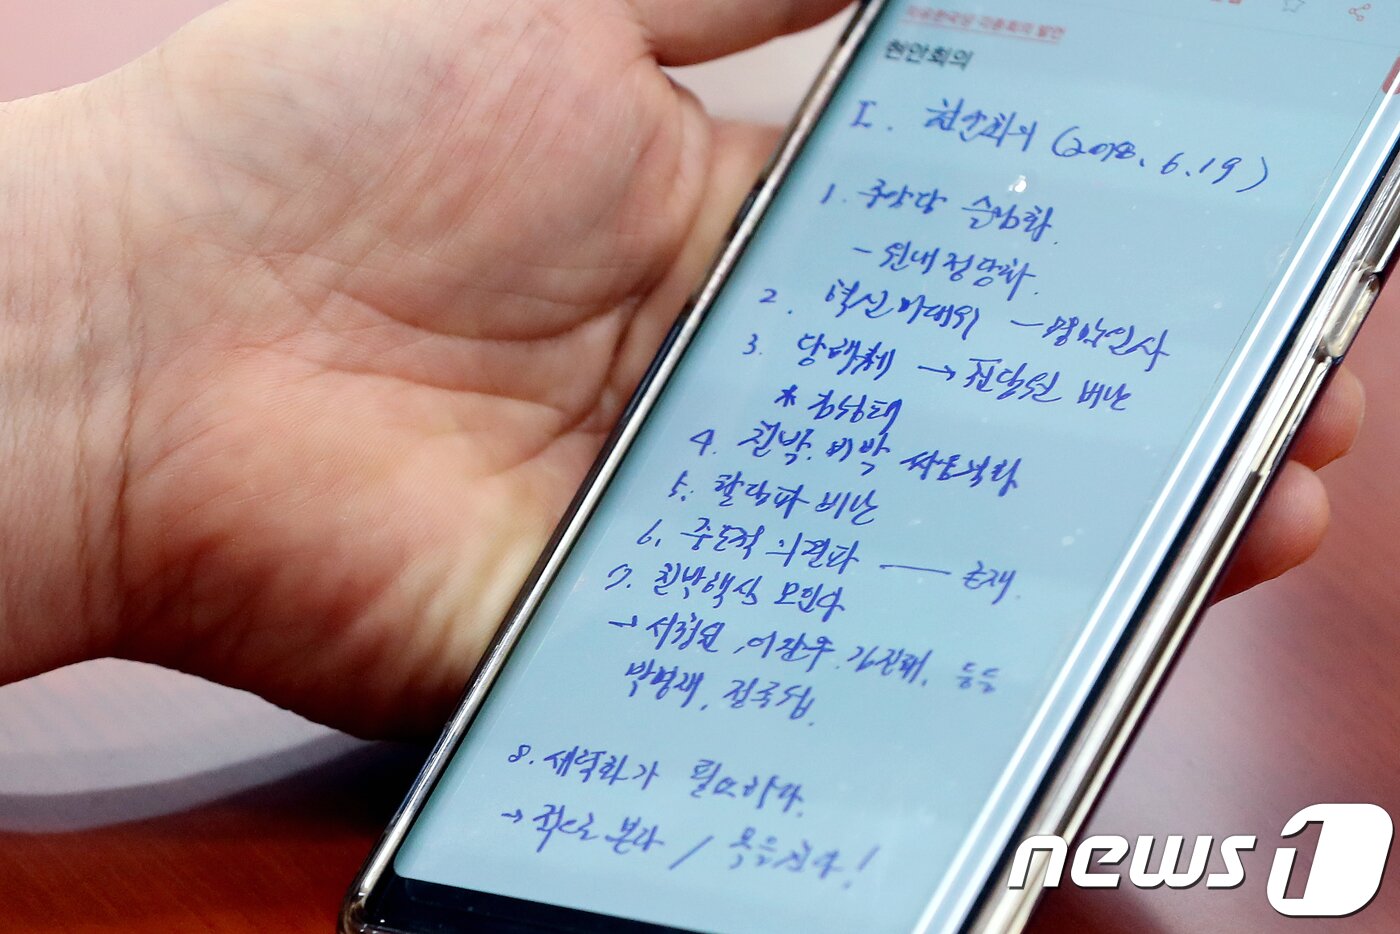 현안회의
I. 현안회의 (2018. 6. 19)
1. 중앙당 슬림화
- 원내정당화.
2. 혁신비대위 -
3. → 전당원 비난
*
4. 친박. 비박 싸움격화
5. 탈당파 비난
6. 중도적 의견파 — 존재.
7. 친박핵심 모인다
→ 서청원, 이완구, 김진태, 등등
박명재, 정종섭.
8. 세력화가 필요하다.
→ 적으로 본다 / 목을 친다!
news1